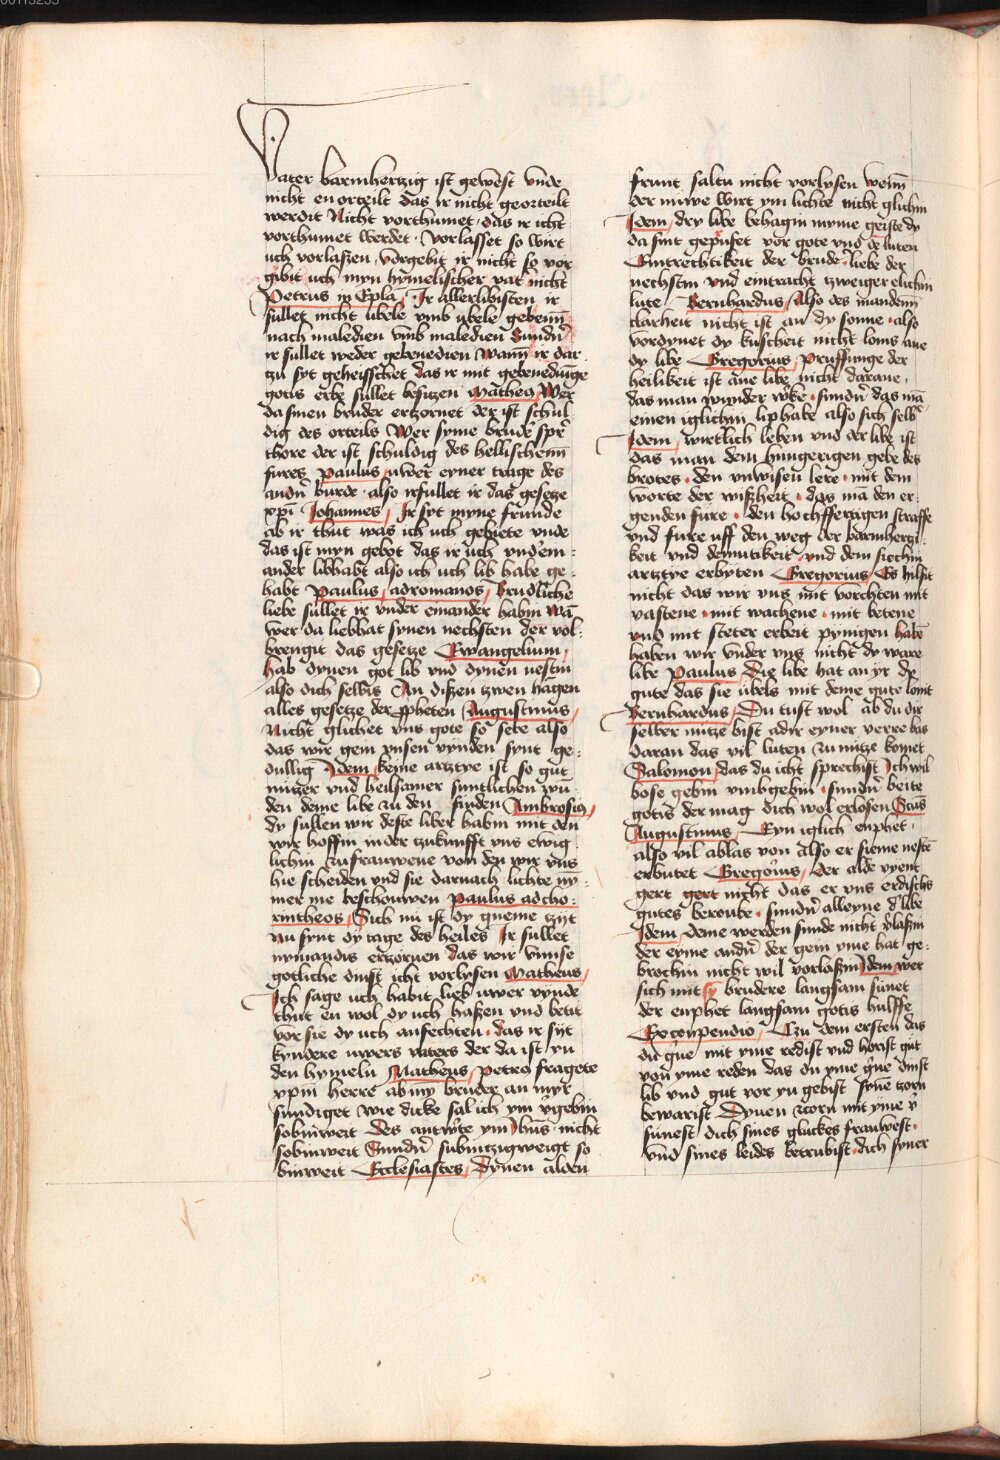 Vater barmhertzig ist gewest vnde
nicht en orteilt das ir nicht georteilt
werdit Nicht vorthumet das ir icht
vorthumet werdet · Vorlasset so wirt
uch vorlaszen, vorgebit ir nicht so vor
gibit uch myn hymelischer vat' nicht
Petrus in Ep̄la Ir allerlibisten ir
sullet nicht ubele vmb ubele gebenn
nach maledien vmb maledien Sundn̄
ir sullet weder gebenedien wann ir dar
zu syt geheisschet das ir mit gebenediunge
gotis erbe sullet besitzen Matheus Wer
da sinen bruder ertzornet der ist schul
dig des orteils Wer syme brude' spr'
thore der ist schuldig des hellischenn
fures Paulus uwer eyner trage des
andn̄ burde · also irfullet ir das gesetze
xp̄i Johannes / Ir syt myne frunde
ab ir thut was ich uch gebiete vnde
das ist myn gebot das ir uch vnd' ein
ander libhabt also ich uch lib habe ge
habt Paulus ad romanos / Brudliche
liebe sullet ir vnder einander habin wā
wer da liebhat synen nechsten der vol
brengit das gesetze Ewangelium /
hab dynen got lib vnd dynen nestin
also dich selbis An diszen zwen hāgen
alles gesetze der ppheten Augustinus /
Nicht glichet vns gote so sere also
das wir gern vnsen vynden synt ge
dullig Idem keyne artztye ist so gut
nutzer vnd heilsamer suntlichen wu
den denne libe zu den finden Ambrosius /
dy sullen wir deste liber habin mit den
wir hoffin in der tzukunfft vns ewig
lichin zu frauwene von den wir vns
hie scheiden vnd sie darnach lichte ny
mer me beschouwen Paulus ad cho
rintheos / Sich nu ist dy gneme tzyt
nu synt dy tage des heiles Ir sullet
nymandis ertzornen das wir vmse
gotliche dinst icht vorlysen Matheus /
Ich sage uch habit lieb uwer vynde
thut en wol dy uch haszen vnd betit
vor sie dy uch anfechten · das ir syt
kyndere uwers vaters der da ist yn
den hymeln Matheus / Petro fragete
xpm̄ herre ab my bruder an myr
sundiget wie dicke sal ich ym v'gebin
sobinweit Des antw'te ym Ihus nicht
sobinweit Sundn̄ subintzigweigt so
binweit Ecclesiastes / Dynen alden
frunt saltu nicht vorlysen wenn
der nuwe wirt ym lichte nicht glichin
Idem / dry libe behagin myme geiste dy
da sint gepufet vor gote vnd de luten
Eintrechtikeit der brude' liebe der
nechstin vnd eintracht tzweiger elichin
lute Bernhardus / Also des mandenn
clarheit nicht ist an dy sonne · also
vordynet dy kuscheit nicht lons ane
dy libe Gregorius / Pruffunge der
heilikeit ist ane libe nicht darane ·
das man wunder w'ke · sundn̄ das mā
einen iglichin liphabe also sich selb'
Idem / wirtlich leben vnd der libe ist
das man dem hungerigen gebe des
brotes · den vnwisen lere · mit dem
worte der wiszheit · das mā den er
genden fure · den hochffertigen straffe
vnd fure uff den weg der barmhertzi
keit vnd demutikeit vnd dem siechin
artztye erbyten Gregorius / Es hilfit
nicht das wir vns mit vorchten mit
vastene · mit wachene · mit betene
vnd mit steter erbeit pynigen habē
haben wir vnder vns nicht dy ware
libe Paulus / Die libe hat an yr dy
gute das sie ubels mit deme gute lonit
Bernhardus / Du tust wol ab du dir
selber nutze bist adir eyner verre bas
daran das vil luten zu nutze komet
Salomon / das du icht sprechist Ich wil
bose gebin vmb gebin · sundn̄ beite
gotis der mag dich wol erlosen Sc̄us
Augustinus / Eyn iglich enphet ·
also vil ablas von also er sieme nestē
erbutet Gregorius / Der alde vyent
gert gert nicht das er vns erdischs
gutes beroube · sundn̄ alleyne d' libe
Idem / Deme werden sunde nicht v'laszin
der eyme andn̄ der gein yme hat ge
brochin nicht wil vorlaszin Idem / wer
sich mit sy brudere langsam sunet
der enphet langsam gotis hulffe
Ex conpendio / Czu dem ersten das
du g'ne mit yme redist vnd horist gut
von yme reden das du yme g'ne dinst
lib vnd gut vor yn gebist syne zorn
bewarist Dynen zcorn mit yme v'
sunest dich sines gluckes frauwest ·
vnd sines leides betrubist · dich syner